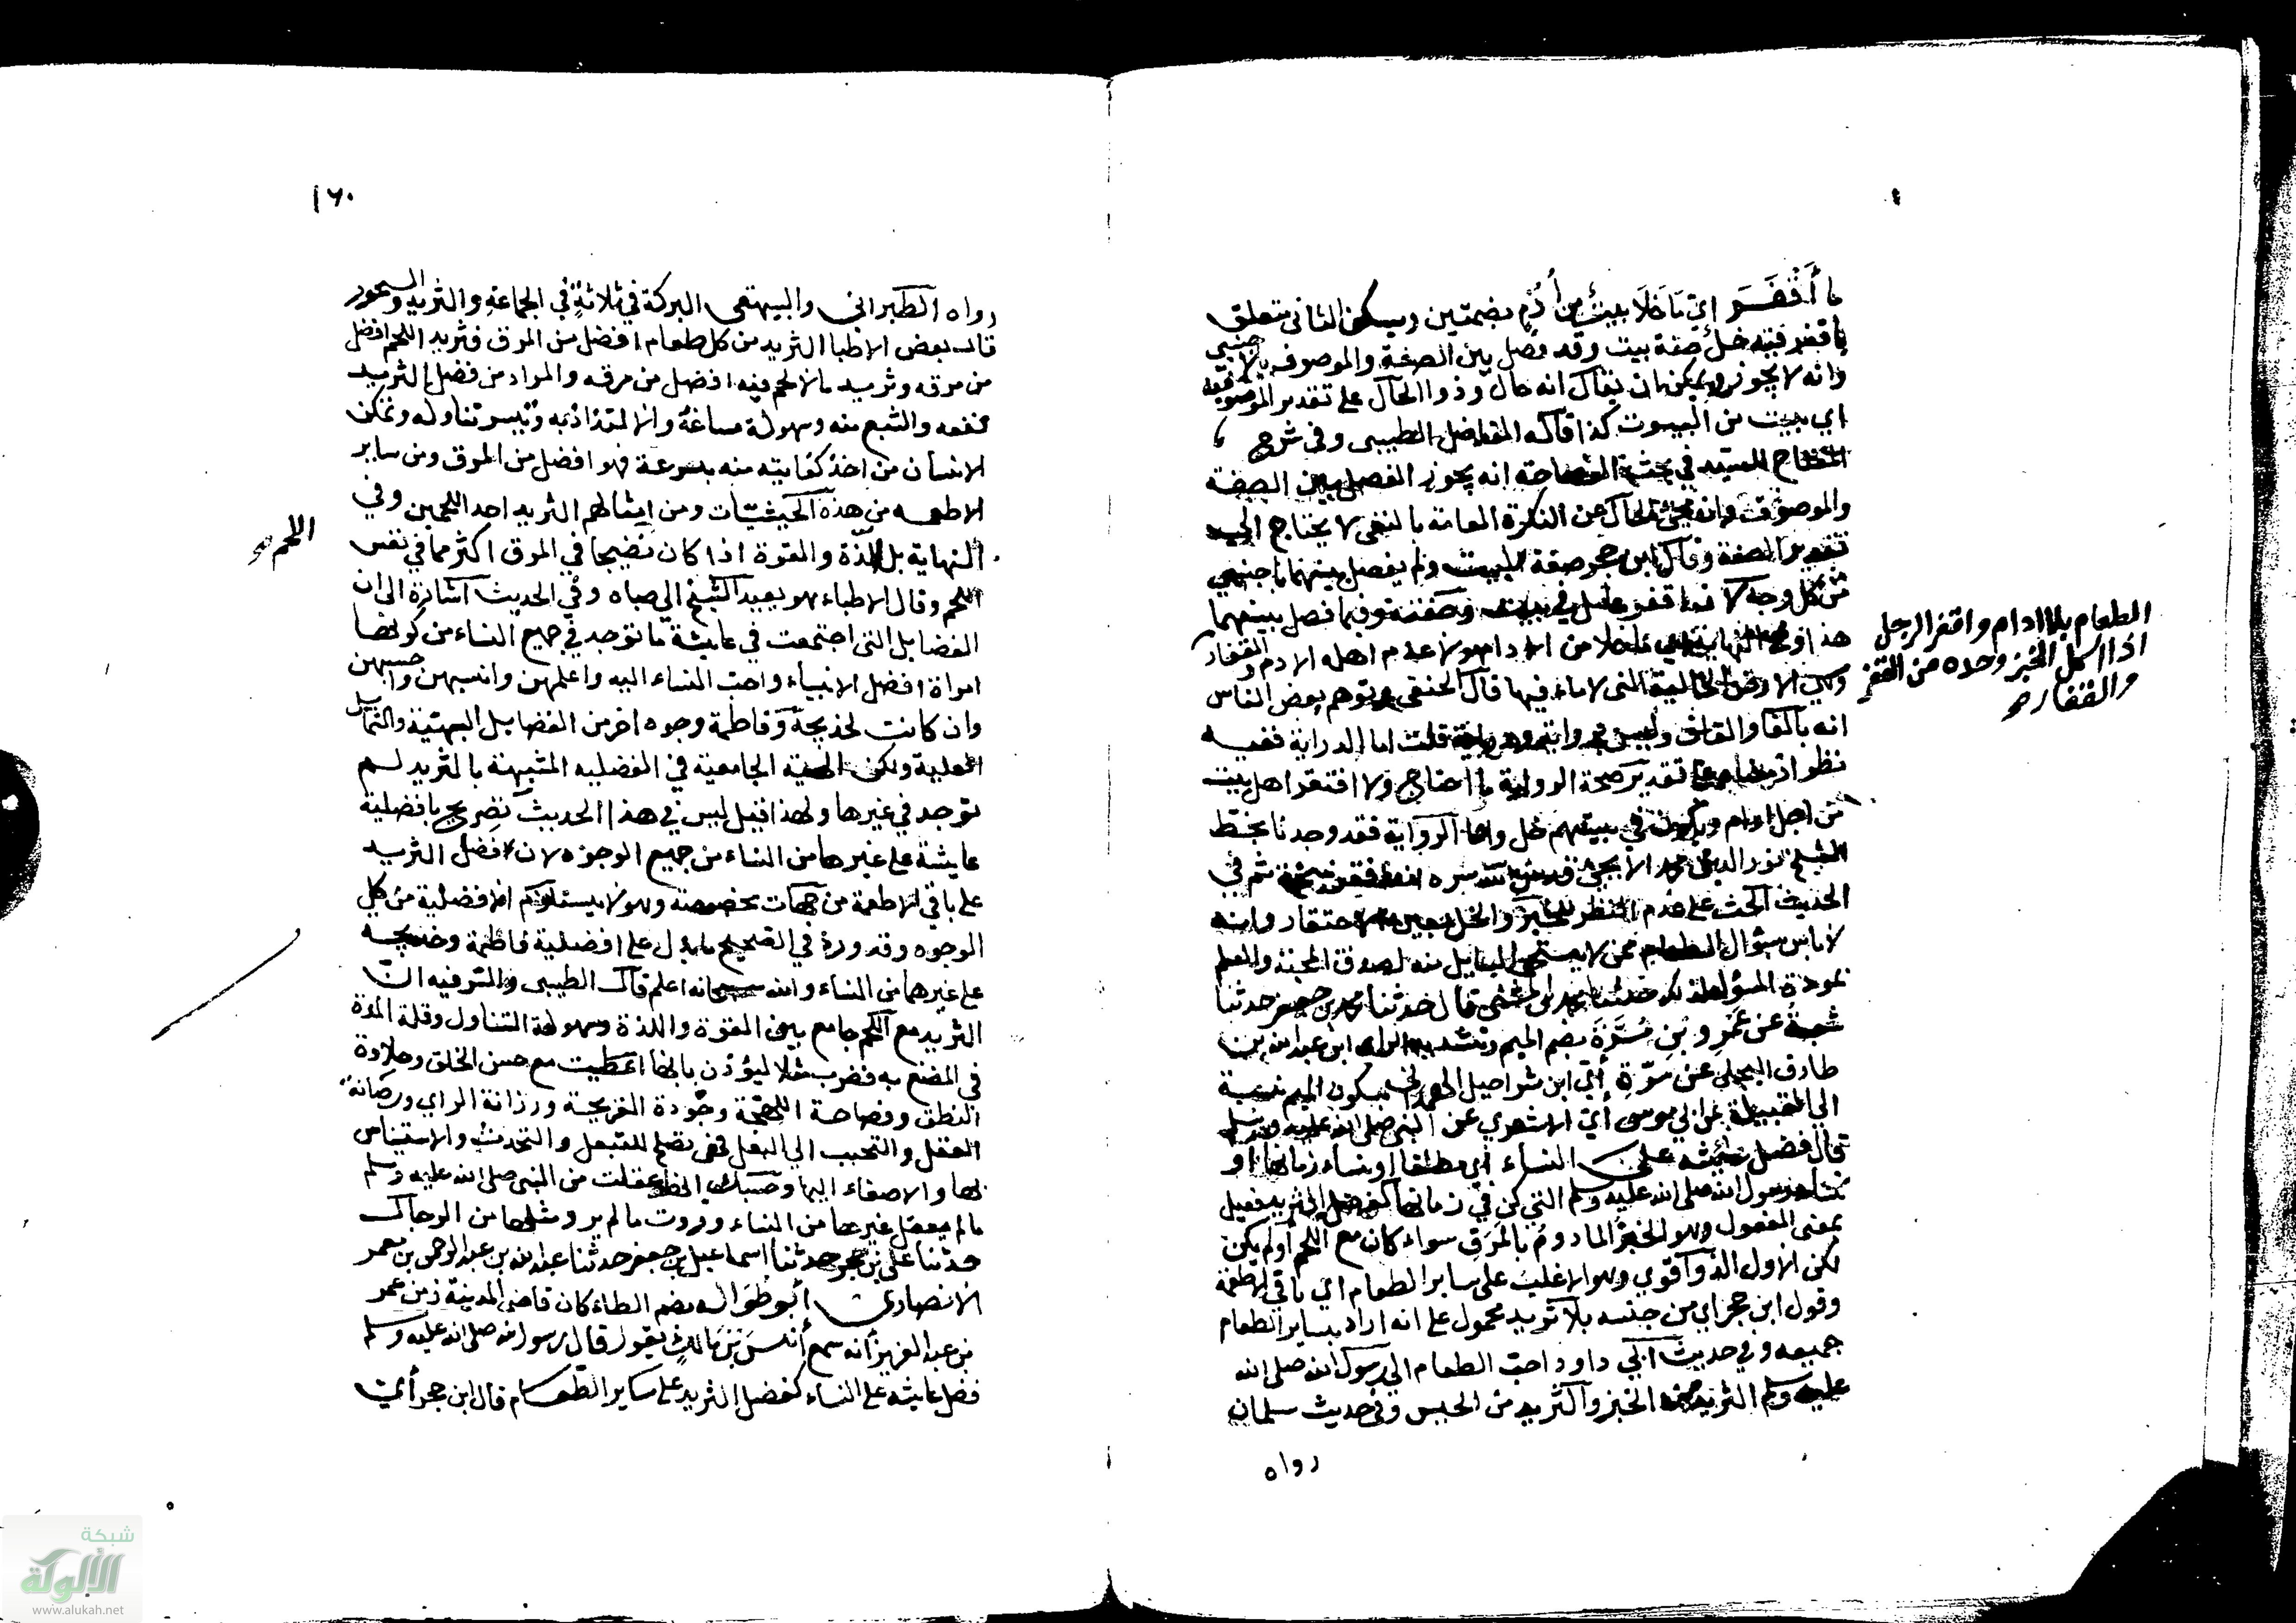 ما أَقْفَرَ اي مَا خَلَا بيتٌ من أُدُمٍ بضمتين ويسكن الثاني متعلق
باقفر فيه خل صفة بيت وقد فصل بين الصفة والموصوف بالاجنبي
وانه لا يجوز ويمكن ان يقال انه حال وذو الحال على تقدير الموصوفية
اي بيت من البيوت كذا قاله الفاضل الطيبي وفي شرح
المفتاح للسيد في بحث الفصاحة انه يجوز الفصل بين الصفة
والموصوف وان مجئ الحال عن النكرة العامة بالنفي لا يحتاج الى
تقدير الصفة وقال ابن حجر صفة لبيت ولم يفصل بينهما باجنبي
من كل وجه لان اقفر عامل في بيت وصفته وفيما فصل بينهما
هذا وفي النهاية اي ما خلا من الادام ولا عدم اهله الادم والقفار
الطعام بلا ادام واقفر الرجل
اذا اكل الخبز وحده من القفر
والقفار صح
وهي الارض الخالية التي لا ماء فيها قال الحنفي وتوهم بعض الناس
انه بالفا والقاف وليس برواية ودراية قلت اما الدراية ففيه
نظر اذ معناه على تقدير صحة الرواية ما احتاج ولا افتقر اهل بيت
من اجل ادام ويكون في بيتهم خل واما الرواية فقد وجدنا بخط
الشيخ نور الدين محمد الايجي قدس الله سره افتقر نسخة ثم في
الحديث الحث على عدم النظر للخبز والخل بعين الاحتقار وانه
لا باس بسؤال الطعام ممن لا يستحيي السايل منه لصدق المحبة والعلم
بمودة المسؤل لذلك حدثنا محمد بن المثنى قال حدثنا محمد بن جعفر حدثنا
شعبةُ عن عَمْرِو بْنِ مُرَّةَ بضم الميم وتشديد الراء ابن عبد الله بن
طارق البجلي عن مرّةِ أي ابن شراحيل الهمداني بسكون الميم نسبة
الي القبيلة عن ابي موسى أي الاشعري عن النبي صلى الله عليه وسلم
قال فضل عائشة على النساء أي مطلقا او نساء زمانها او
نساء رسول الله صلى الله عليه وسلم التي كن في زمانها كفضل الثريد فعيل
بمعنى المفعول وهو الخبز المادوم بالمرق سواء كان مع اللحم أو لم يكن
لكن الاول الذ وأقوي وهو الاغلب على ساير الطعام اي باقي الاطعمة
وقول ابن حجر اي من جنسه بلا ثريد محمول على انه اراد بساير الطعام
جميعه وفي حديث ابي داود احب الطعام الى رسول الله صلى الله
عليه وسلم الثريد من الخبز والثريد من الحيس وفي حديث سلمان
رواه
١٦٠
رواه الطبراني والبيهقي البركة في ثلاثةٍ في الجماعةِ والثريدِ والسحور
قال بعض الاطبا الثريد من كل طعام افضل من المرق فثريد اللحم افضل
من مرقه وثريد مالا لحم فيه افضل من مرقه والمراد من فضل الثريد
نفعه والشبع منه وسهولة مساغهُ والالتذاذ به وتيسر تناوله وتمكن
الانسان من اخذ كفايته منه بسرعة فهو افضل من المرق ومن ساير
الاطعمه من هذه الحيثيات ومن امثالهم الثريد احد اللحمين وفي
النهاية بل اللذّة والقوة اذا كان نضيجا في المرق اكثر مما في نفس
اللحم صح
اللحم وقال الاطباء هو يعيد الشيخ الي صباه وفي الحديث اشارة الى ان
الفضايل التي اجتمعت في عايشة ما توجد في جميع النساء من كونها
امراة افضل الانبياء واحب النساء اليه واعلمهن وانسبهن واحسبهن
وان كانت لخديجة وفاطمة وجوه اخر من الفضايل البهيّة والشمايل
العلية ولكن الهيئة الجامعية في الفضليه المشبهة بالثريد لم
توجد في غيرها ولهذا قيل ليس في هذا الحديث تصريح بافضلية
عايشة على غيرها من النساء من جميع الوجوه لان فضل الثريد
على باقي الاطعمة من جهات مخصوصة وهو لا يستلزم الافضلية من كل
الوجوه وقد ورد في الصحيح ما يدل على افضلية فاطمة وخديجه
على غيرهما من النساء والله سبحانه اعلم قال الطيبي والسر فيه ان
الثريد مع اللحم جامع بين القوة واللذة وسهولة التناول وقلة المدة
في المضغ به فضرب مثلا ليؤذن بانها اعطيت مع حسن الخلق وحلاوة
النطق وفصاحة اللهجة وجُودة القريحة ورزانة الراي ورصانة
العقل والتحبب الي البعل فهي تصلح للتبعل والتحدث والاستيناس
بها والاصغاء اليها وحسبك انها عقلت من النبي صلى الله عليه وسلم
مالم يعقل غيرها من النساء وروت مالم يرو مثلها من الرجال
حدثنا علي بن حجر حدثنا اسماعيل بن جعفر حدثنا عبد الله بن عبد الرحمن بن معمر
الانصاري أبو طُوَاله بضم الطاء كان قاضي المدينة زمن عمر
بن عبد العزيز أنه سمع أنسَ بْنَ مَالكٍ يقول قال رسول الله صلى الله عليه وسلم
فضل عايشه على النساء كفضل الثريد على ساير الطعام قال ابن حجر أي
شبكة
الألوكة
www.alukah.net